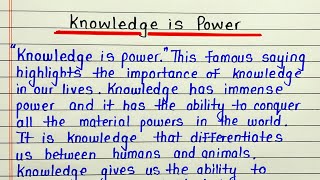 Knowledge is Power
"Knowledge is power." This famous saying
highlights the importance of knowledge
in our lives. Knowledge has immense
power and it has the ability to conquer
all the material powers in the world.
It is knowledge that differentiates
us between humans and animals.
Knowledge gives us the ability to